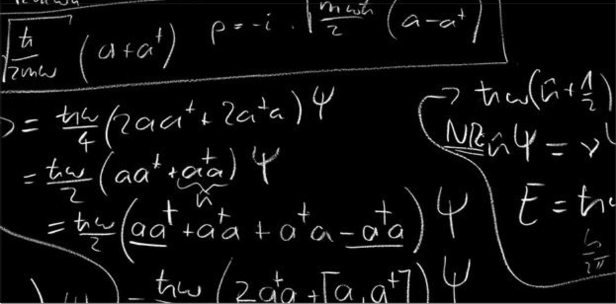 √(ħ/2mω) (a+a†) p = -i · √(mωħ/2) (a-a†)
= ħω/4 (2aa† + 2a†a) Ψ
= ħω/2 (aa† + a†a) Ψ
n̂
= ħω/2 (aa† + a†a + a†a - a†a) Ψ
= ħω/2 (2a†a + [a, a†]) Ψ
→ ħω(n̂ + 1/2)
NR n̂Ψ = ν
E = ħω
h/2π